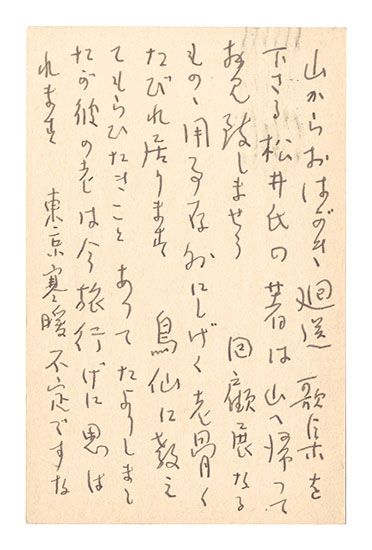 山からおはがき、廻送 歌集を
下さる 松井氏の著は山へ帰って
拝見致しませう 回顧展なる
もの、用事存外にしげく老骨く
たびれて居ります 鳥仙に教え
てもらひたきことあってたよりしまし
たが彼の老は今旅行げに思は
れます 東京寒暖不定ですな